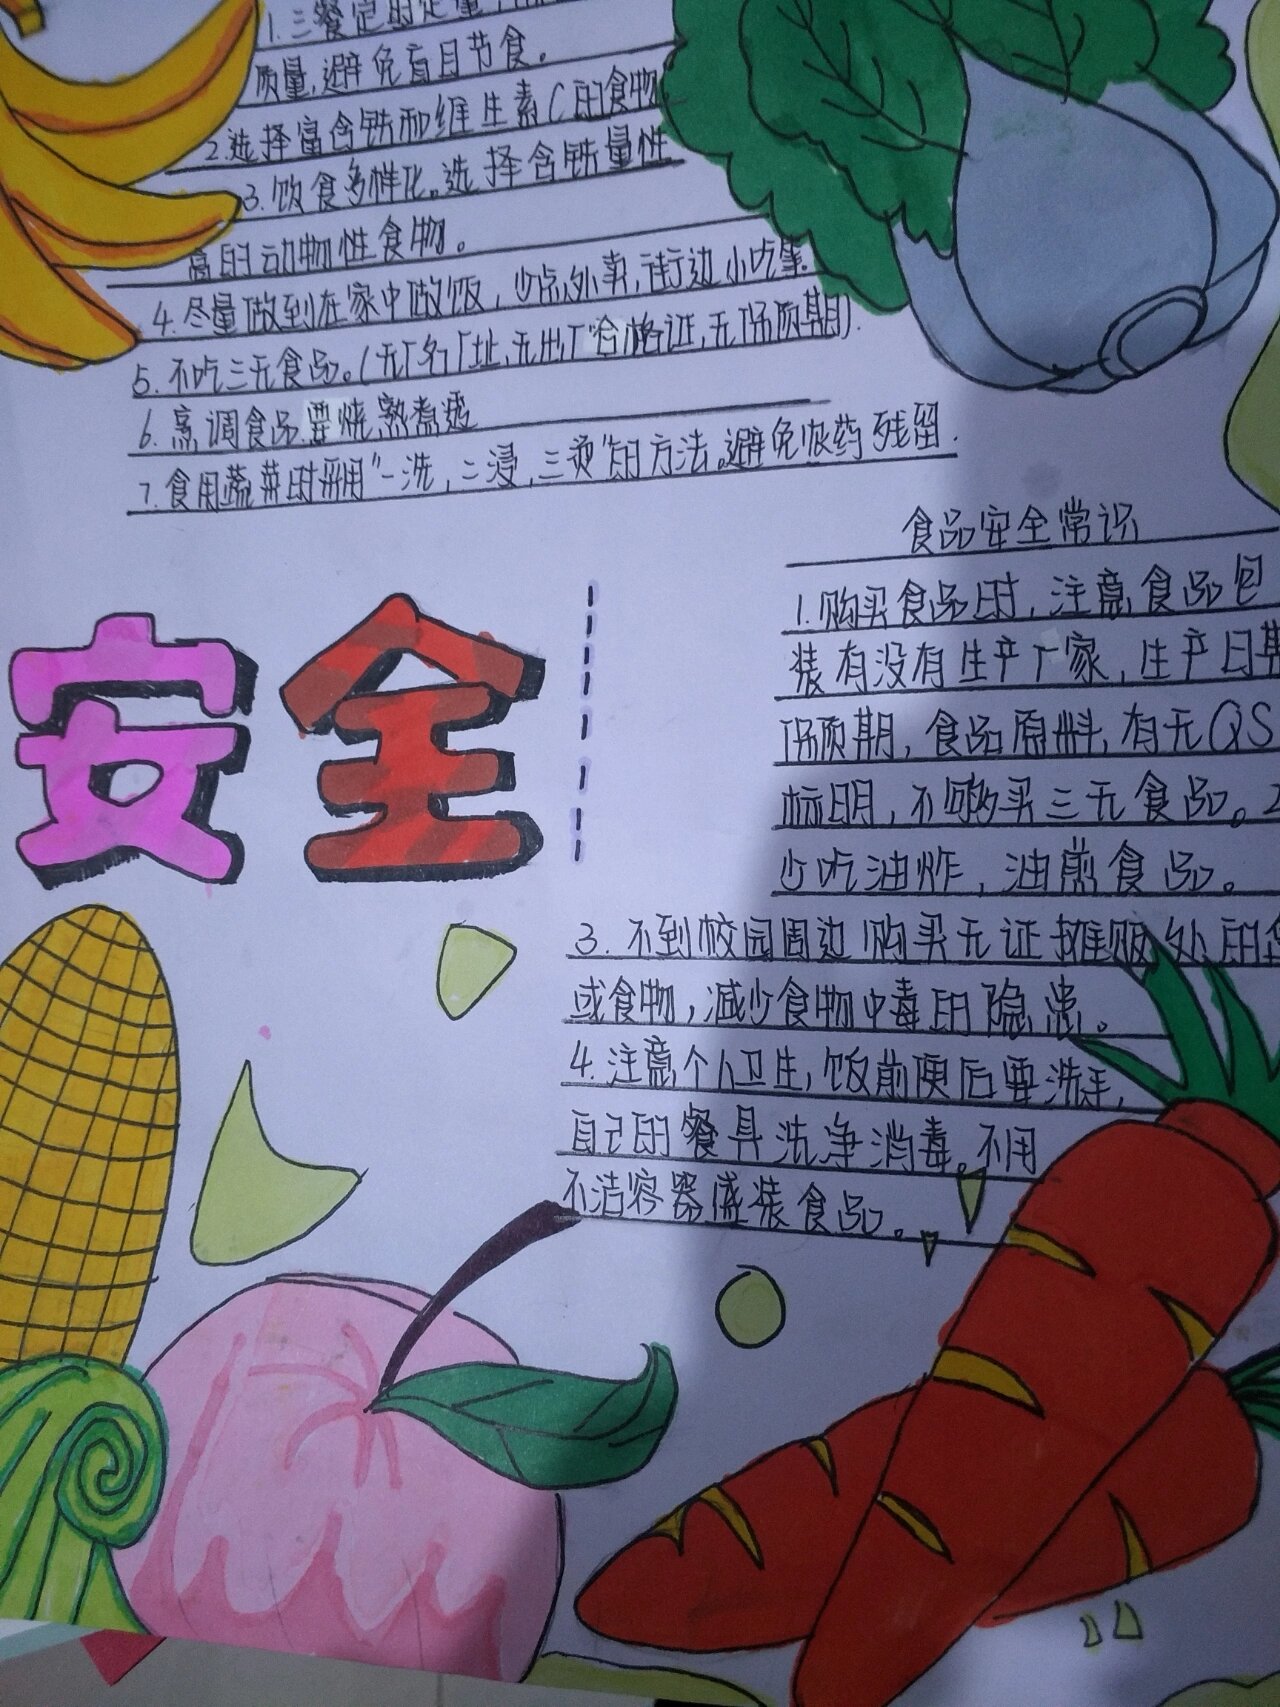 1.三餐定时定量,
质量,避免盲目节食。
2.选择富含铁和维生素C的食物
3.饮食多样化。选择含铁量性
高的动物性食物。
4.尽量做到在家中做饭,少点外卖,街边小吃等.
5.不吃三无食品。(无厂名厂址,无出厂合格证,无保质期).
6.烹调食品要烧熟煮透
7.食用蔬菜时采用"一洗,二浸,三烫"的方法。避免农药残留.
安全
食品安全常识
1.购买食品时,注意食品包
装有没有生产厂家,生产日期
保质期,食品原料,有无QS
标明,不购买三无食品。2
少吃油炸,油煎食品。
3.不到校园周边购买无证摊贩处的
或食物,减少食物中毒的隐患。
4.注意个人卫生,饭前便后要洗手,
自己的餐具洗净消毒。不用
不洁容器盛装食品。